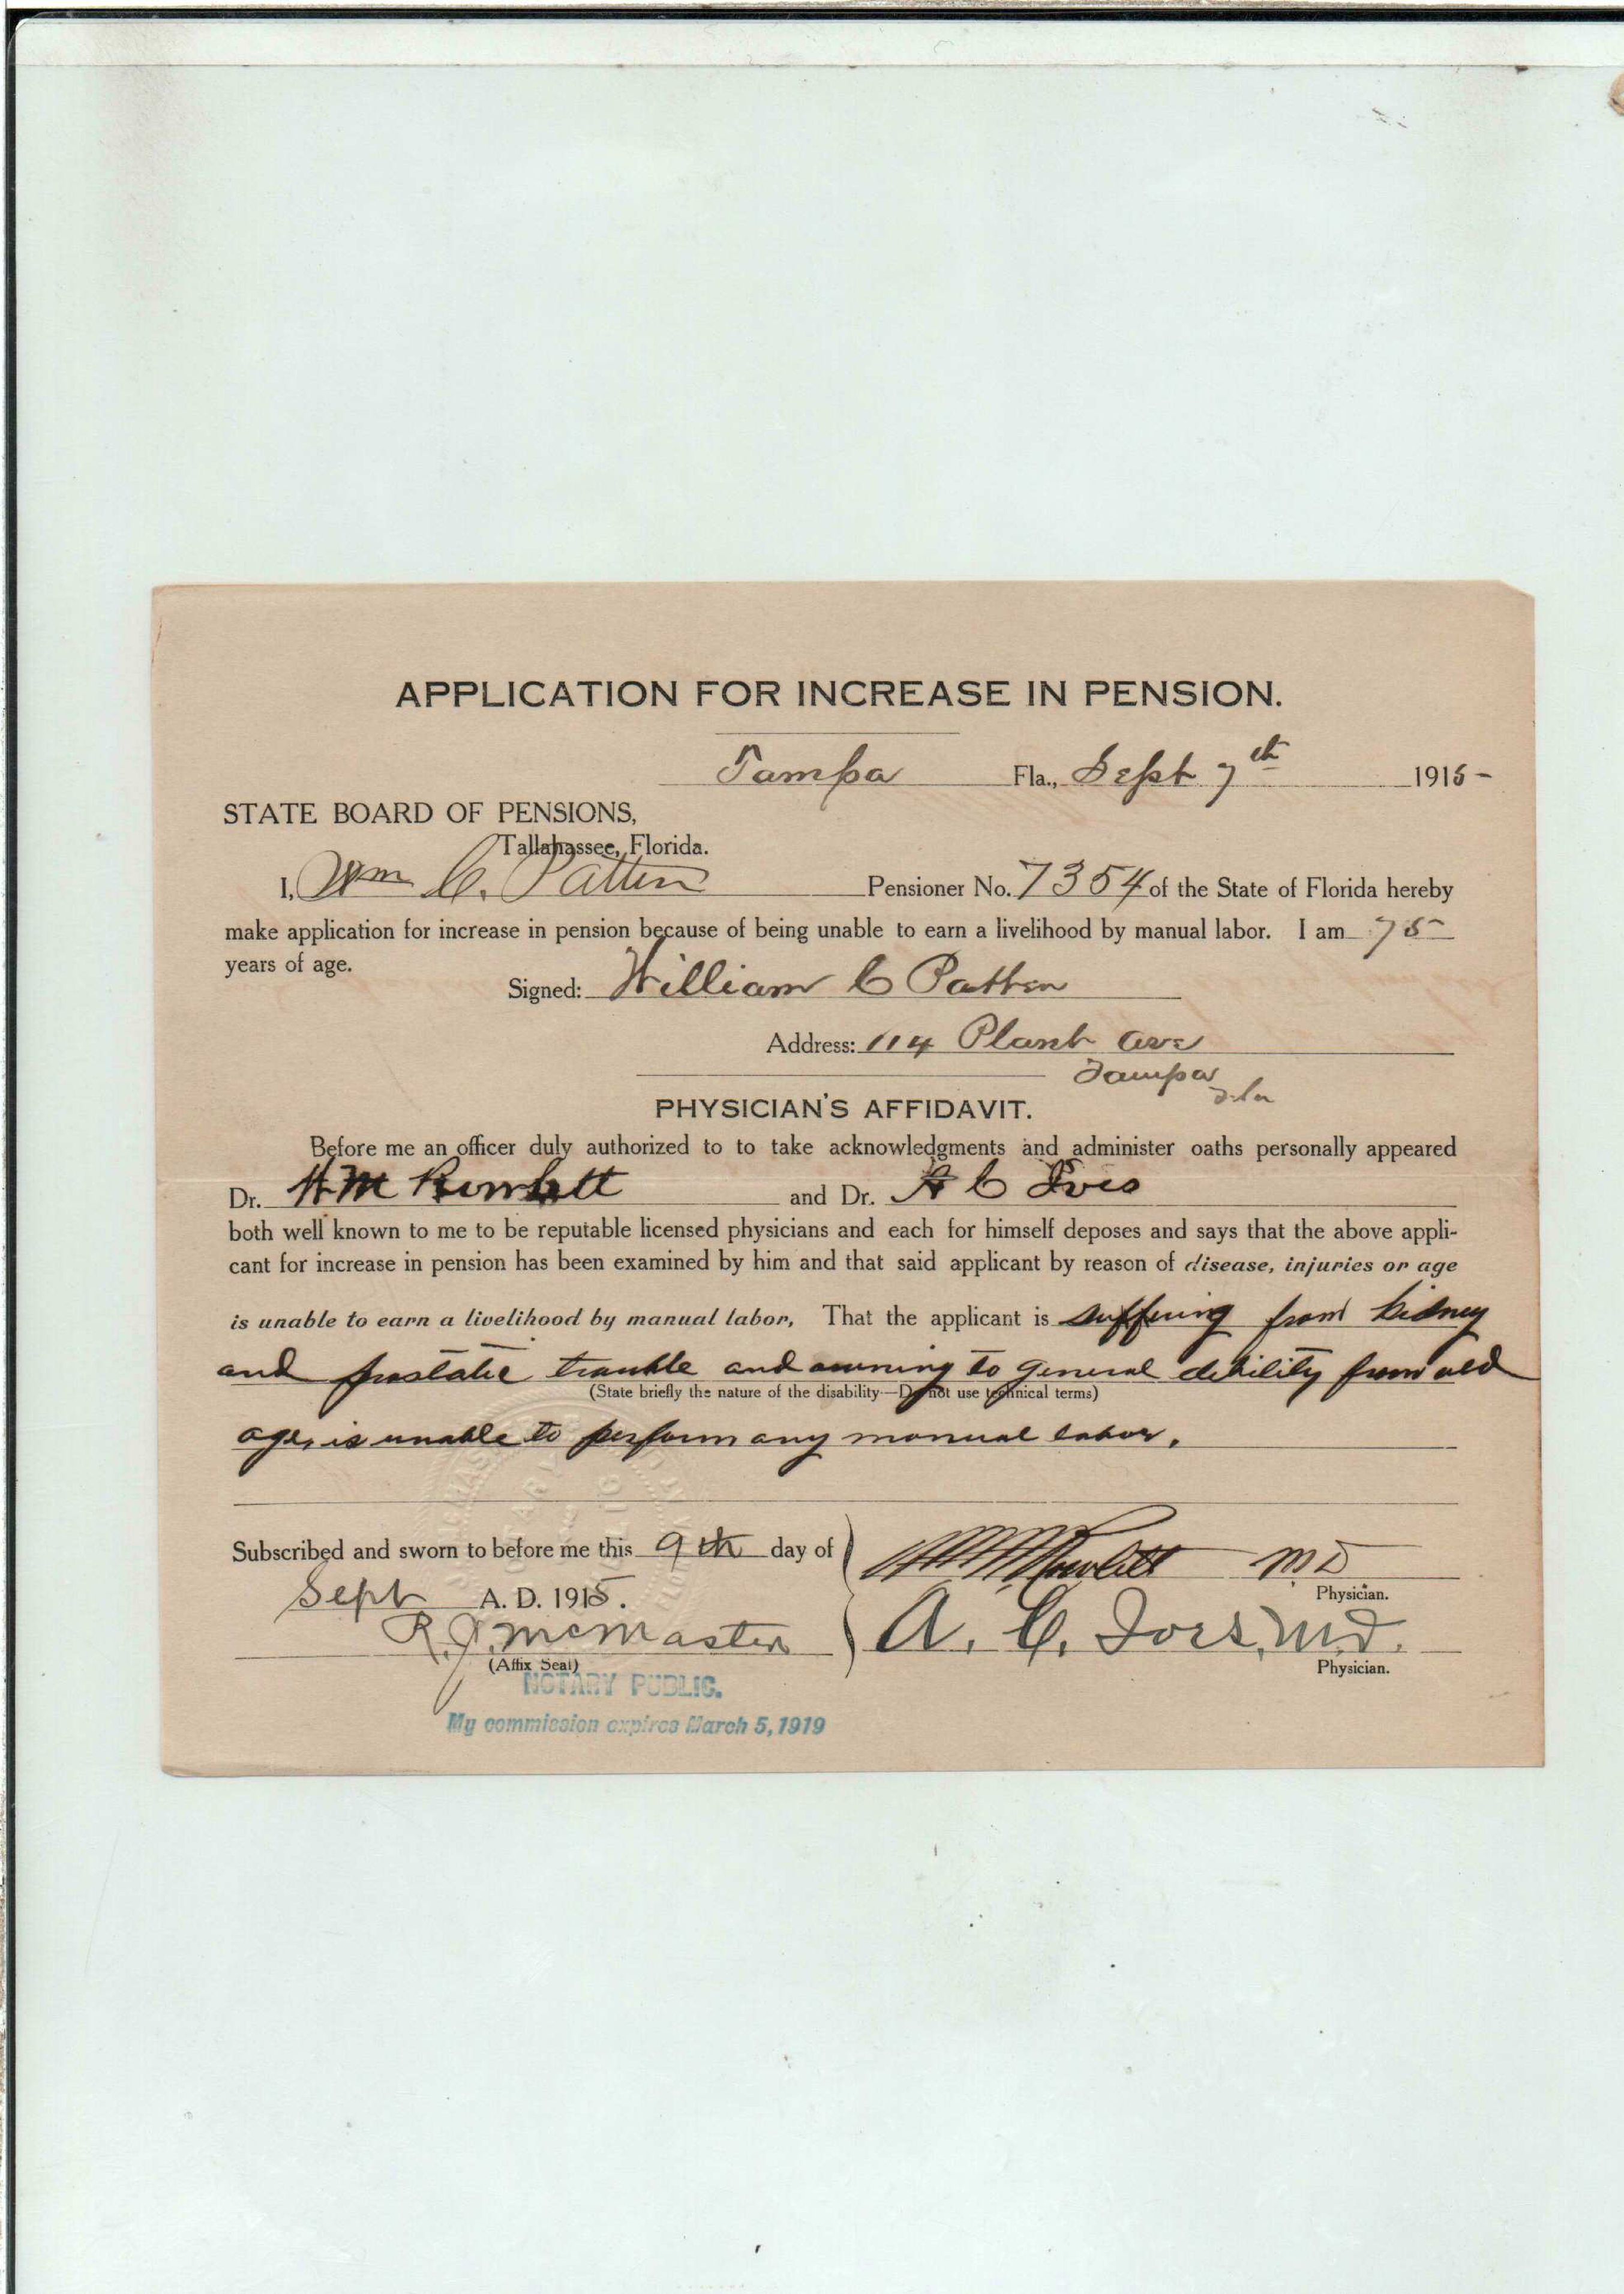 APPLICATION FOR INCREASE IN PENSION.
Tampa Fla., Sept 7th 1915-
STATE BOARD OF PENSIONS,
Tallahassee, Florida.
I, Wm C. Patten Pensioner No. 7354 of the State of Florida hereby
make application for increase in pension because of being unable to earn a livelihood by manual labor. I am 75
years of age.
Signed: William C Patten
Address: 114 Plant Ave
Tampa
Fla
PHYSICIAN'S AFFIDAVIT.
Before me an officer duly authorized to to take acknowledgments and administer oaths personally appeared
Dr. H M Rowlett and Dr. A C Ives
both well known to me to be reputable licensed physicians and each for himself deposes and says that the above appli-
cant for increase in pension has been examined by him and that said applicant by reason of disease, injuries or age
is unable to earn a livelihood by manual labor, That the applicant is suffering from kidney
and prostatic trouble and owning to general debility from old
(State briefly the nature of the disability—Do not use technical terms)
age, is unable to perform any manual labor.
Subscribed and sworn to before me this 9th day of
Sept A. D. 1915.
Rowlett MD
Physician.
R. J. McMaster
A. C. Ives, M.D.
(Affix Seal)
Physician.
NOTARY PUBLIC.
My commission expires March 5, 1919